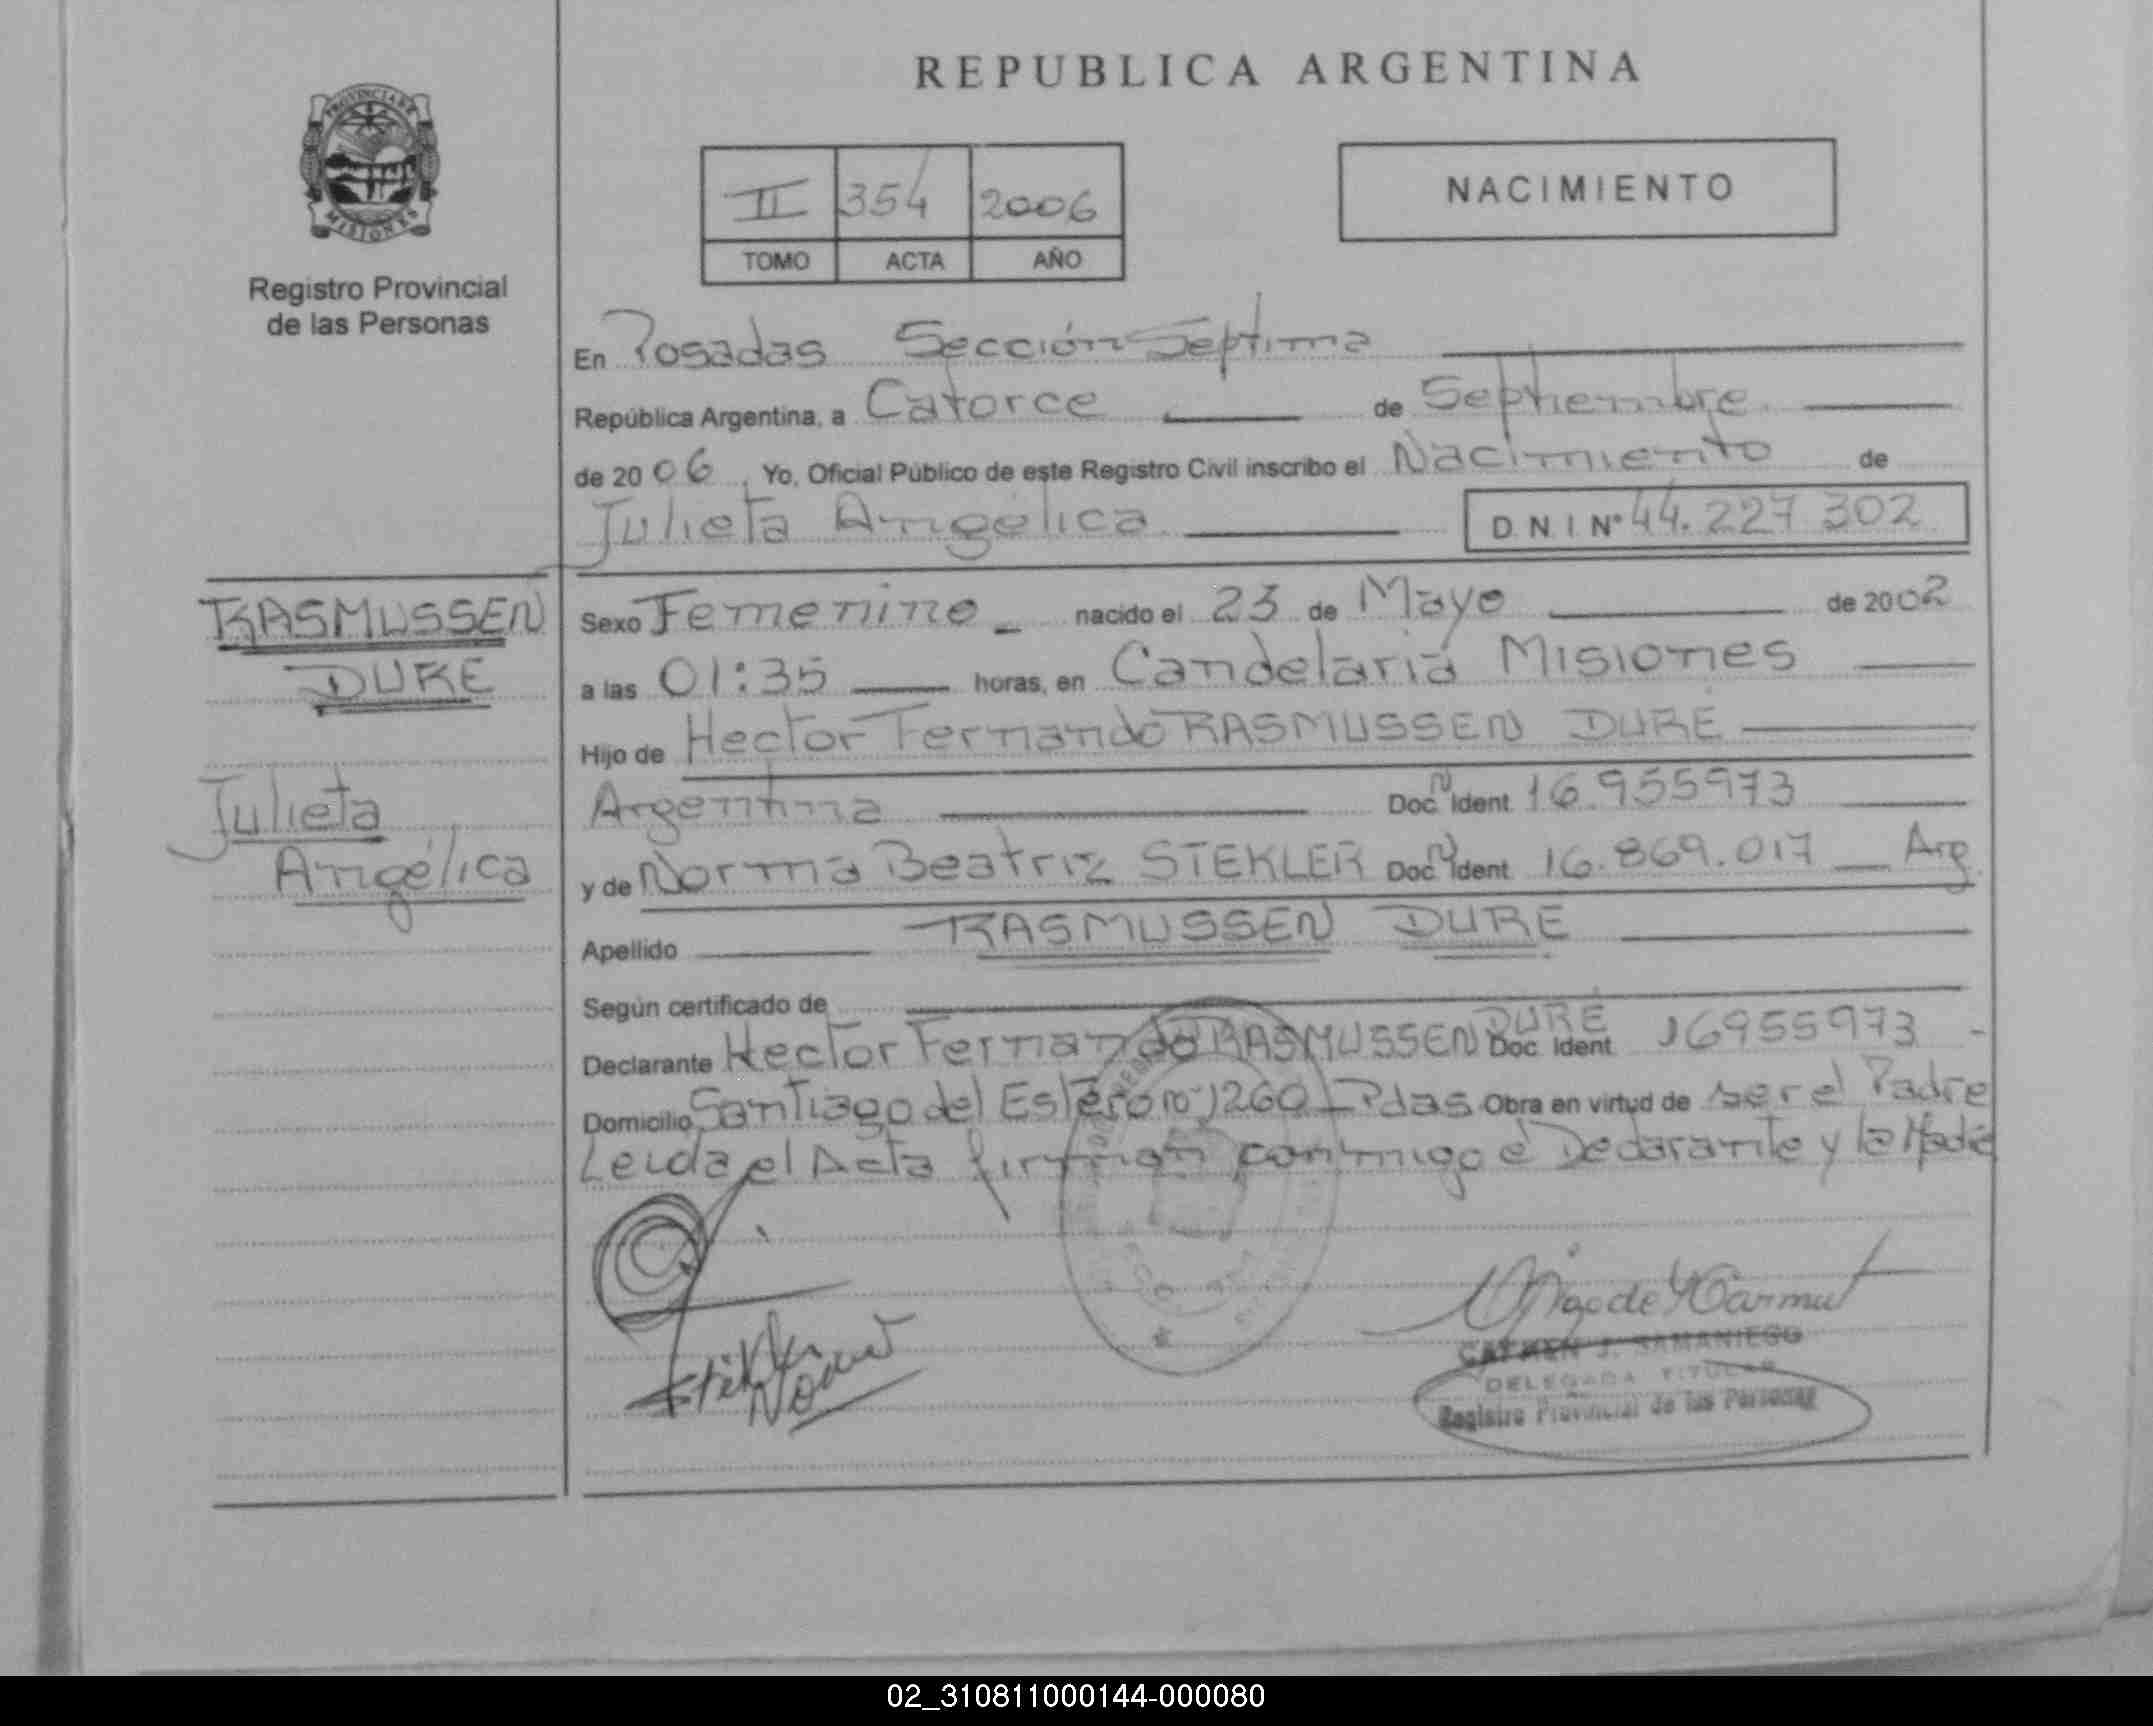 REPUBLICA ARGENTINA
PROVINCIA DE
MISIONES
Registro Provincial
de las Personas
II 354 2006
TOMO ACTA AÑO
NACIMIENTO
En Posadas Sección Septima
República Argentina, a Catorce de Septiembre
de 2006, Yo, Oficial Público de este Registro Civil inscribo el Nacimiento de
Julieta Angélica D.N.I Nº 44.227 302
RASMUSSEN
DURE
Julieta
Angélica
Sexo Femenino nacido el 23 de Mayo de 2002
a las 01:35 horas, en Candelaria Misiones
Hijo de Hector Fernando RASMUSSEN DURE
Argentina Doc N Ident. 16.955973
y de Norma Beatriz STEKLER Doc N Ident. 16.869.017 Arg.
Apellido RASMUSSEN DURE
Según certificado de
Declarante Hector Fernando RASMUSSEN DURE Doc. Ident. 16955973
Domicilio Santiago del Estero Nº 1260 - Pdas Obra en virtud de ser el Padre
Leida el Acta firman conmigo el Declarante y la Madre
CARMEN J. SAMANIEGO
DELEGADA TITULAR
Registro Provincial de las Personas
02_310811000144-000080